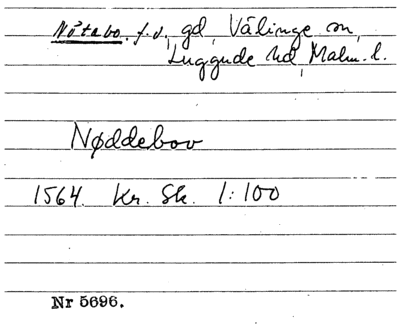 Nötabo. f.d. gd, Välinge sn,
Luggude hd, Malm. l.
Nøddebov
1564 Kr. Sk. 1:100
Nr 5696.